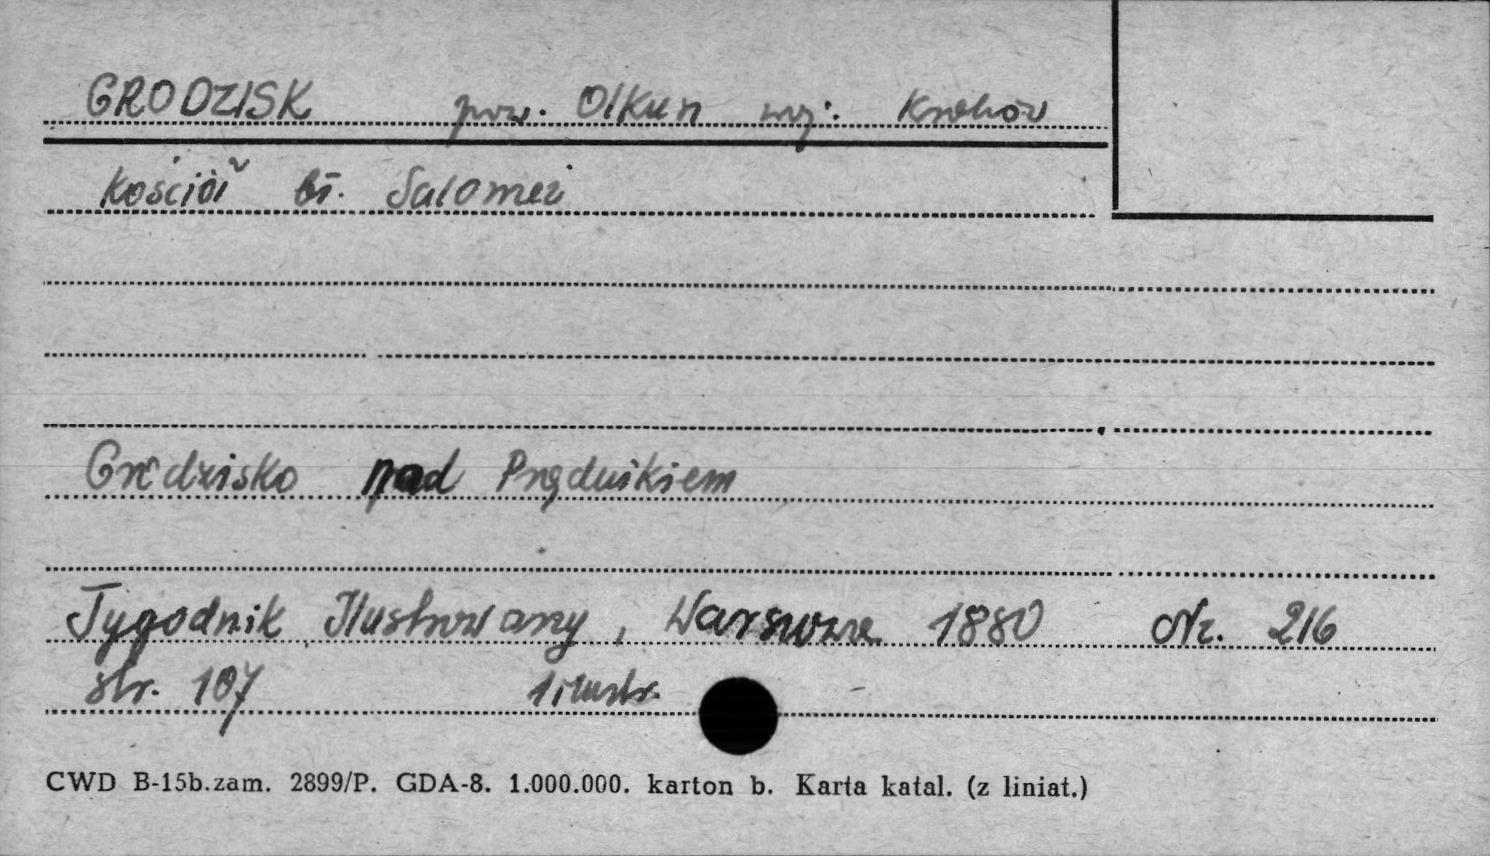 GRODZISK pow. Olkusz woj: Kraków
Kościół bł. Salomei
Grodzisko nad Prądnikiem
Tygodnik Ilustrowany, Warszawa 1880 Nr. 216
str. 107 1 ilustr.
CWD B-15b.zam. 2899/P. GDA-8. 1.000.000. karton b. Karta katal. (z liniat.)